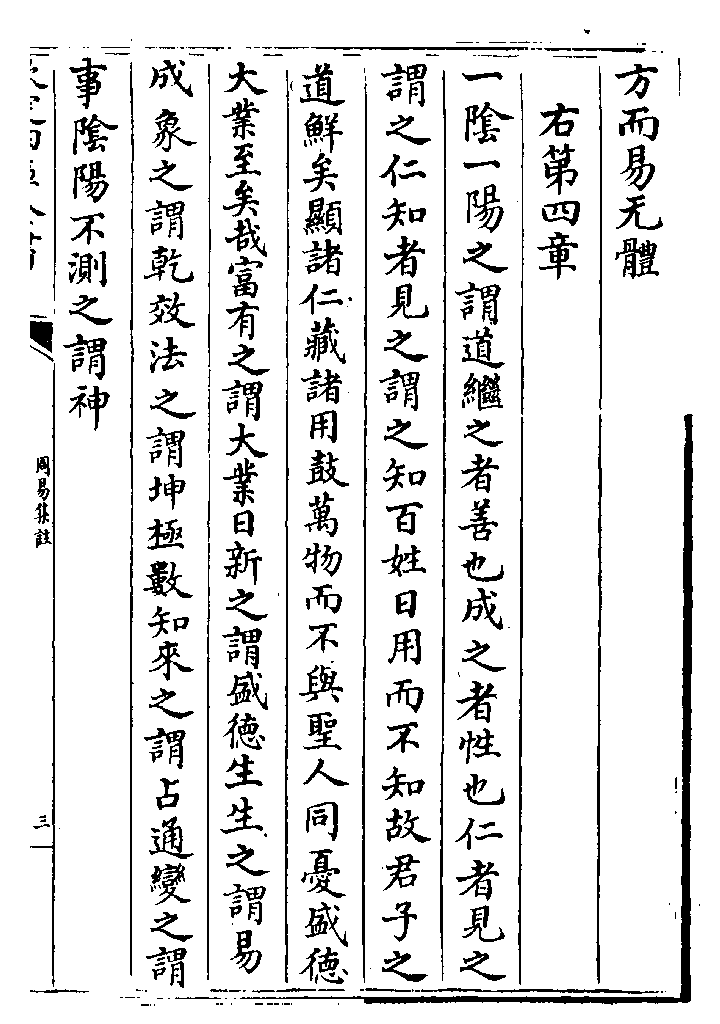 方而易无體
右第四章
一陰一陽之謂道繼之者善也成之者性也仁者見之
謂之仁知者見之謂之知百姓日用而不知故君子之
道鮮矣顯諸仁藏諸用鼓萬物而不與聖人同憂盛德
大業至矣哉富有之謂大業日新之謂盛德生生之謂易
成象之謂乾效法之謂坤極數知來之謂占通變之謂
事陰陽不測之謂神
周易集註
三